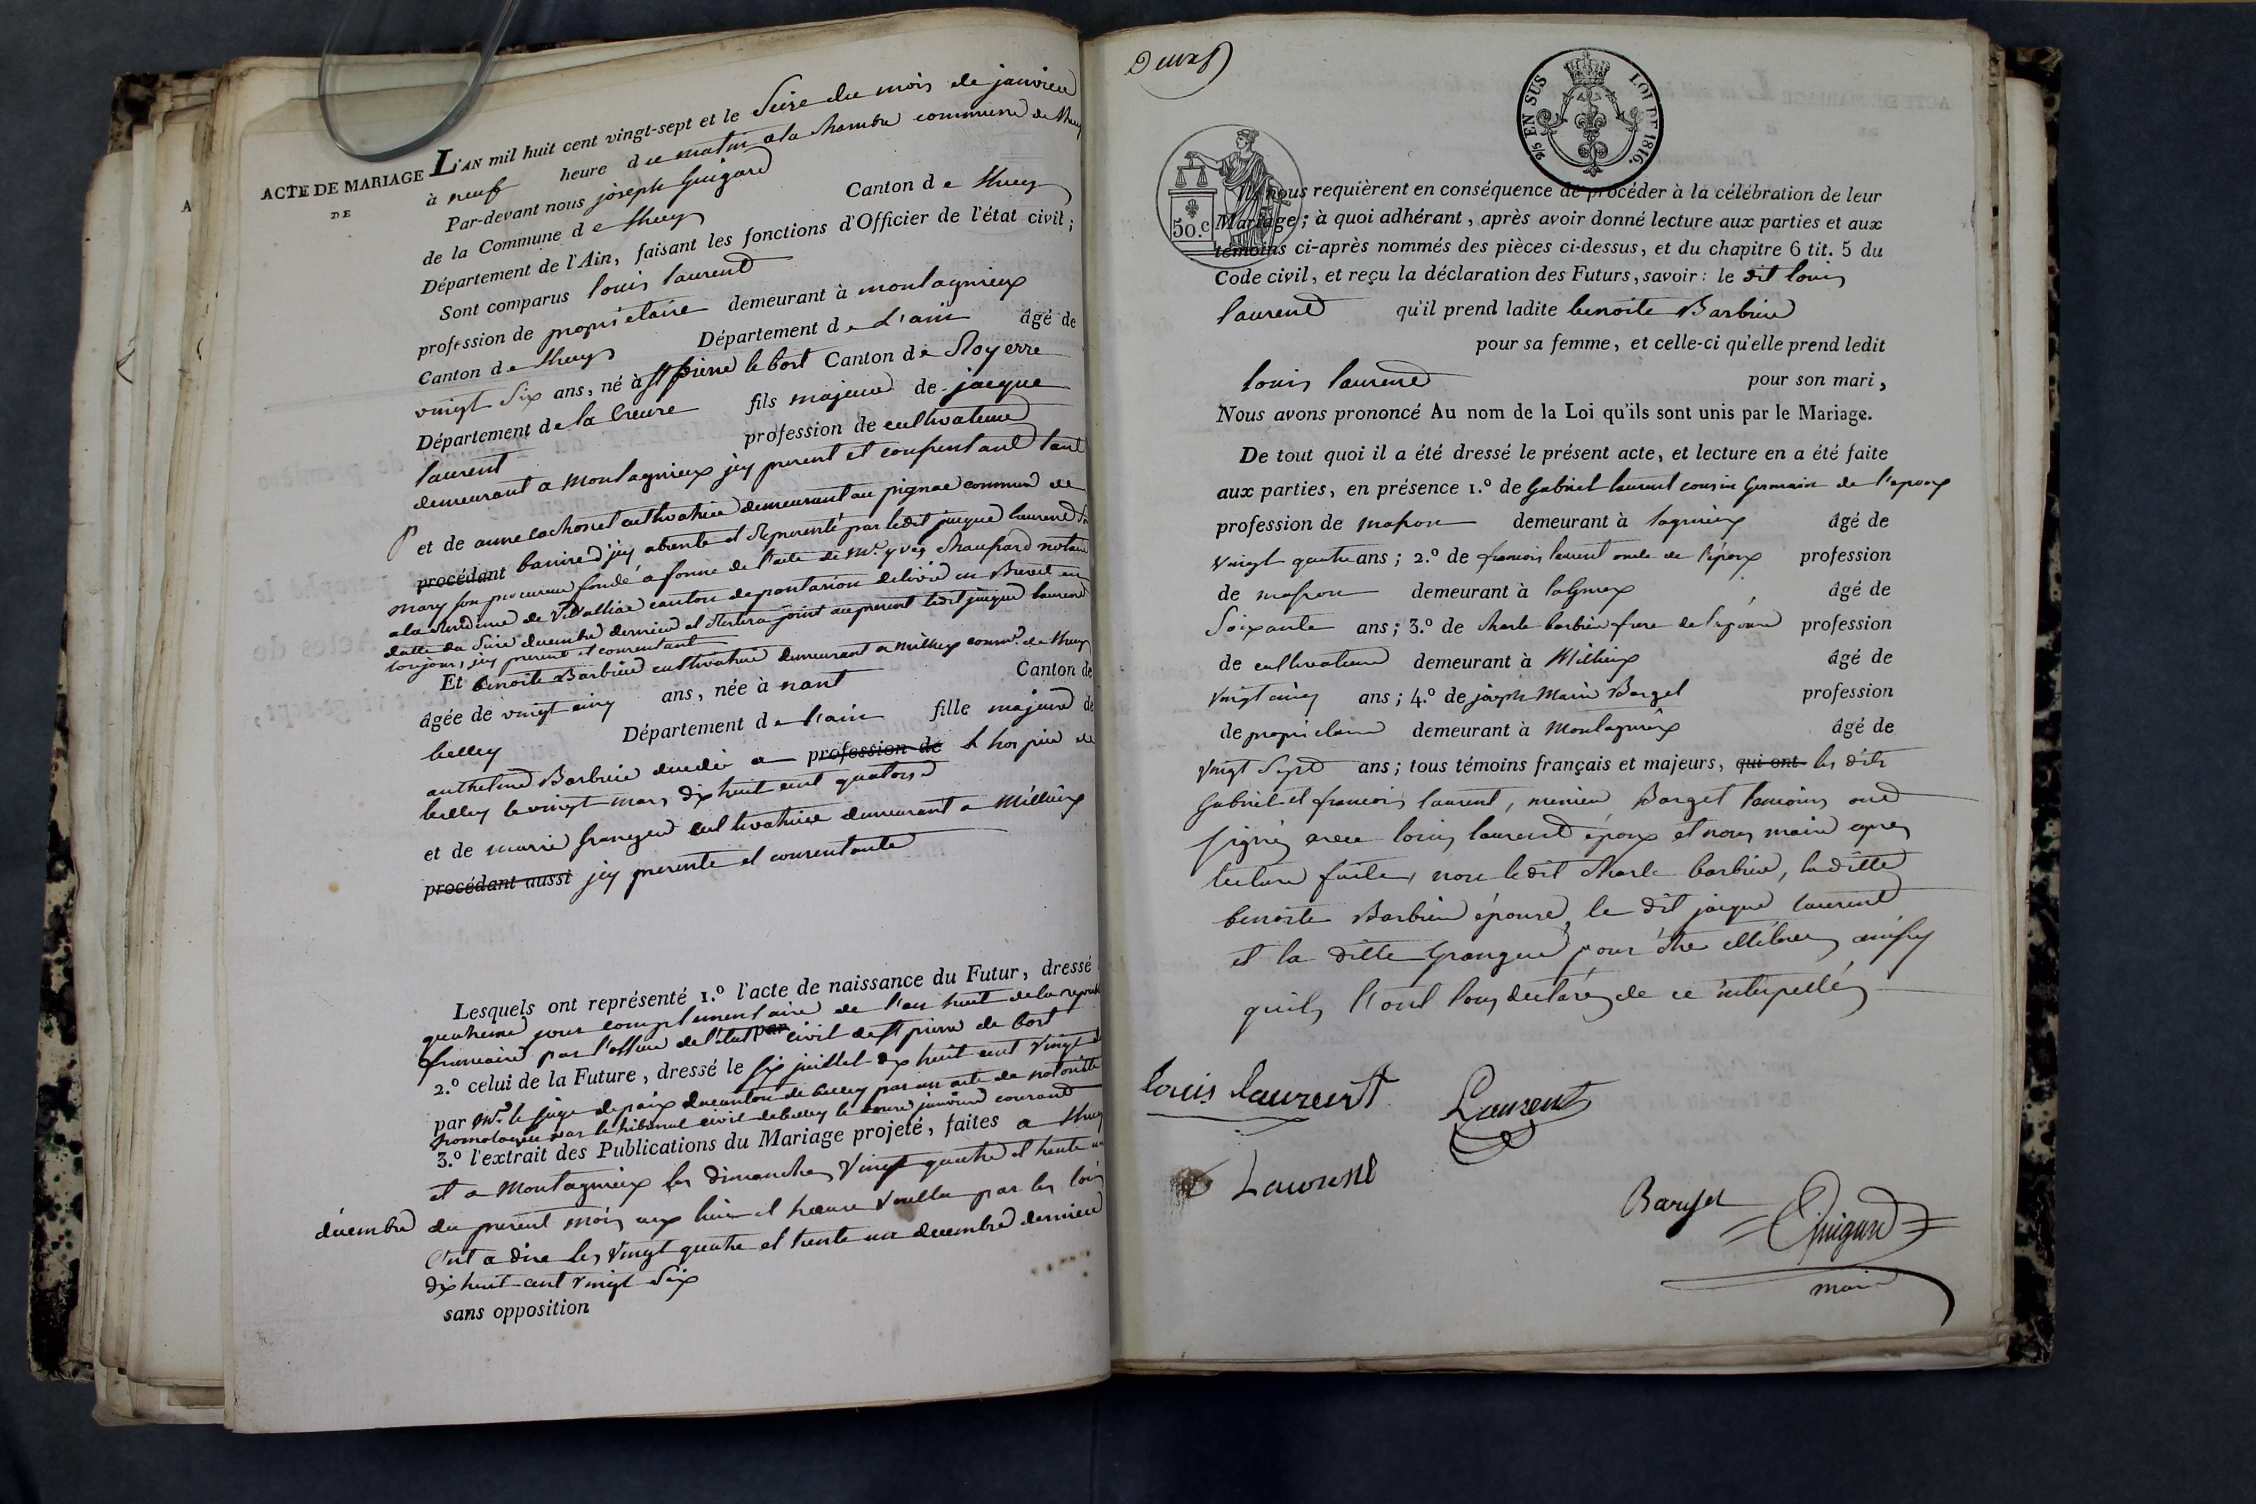 ACTE DE MARIAGE
DE
L'AN mil huit cent vingt-sept et le Seize du mois de janvier
à neuf heure du matin a la chambre commune de Lhuey
Par-devant nous joseph Guigard
de la Commune de Lhuey Canton de Lhuey
Département de l'Ain, faisant les fonctions d'Officier de l'état civil;
Sont comparus louis laurend
profession de proprietaire demeurant à montagnieux
Canton de Lhuey Département de L'ain âgé de
vingt Six ans, né à St pierre le bost Canton de Royerre
Département de la Creuse fils majeur de jacque
laurent profession de cultivateur
demeurant a Montagnieux jcy present et consentant tant
et de anne cultivatrice demeurant au pignac commune de
procédant jcy absente et Representé par ledit jacque laurend
mary son procureur fondé a forme de l'acte de Mr. yves notaire
a la de canton de pontarion delivré en Brevet en
datte du Seize decembre dernier et Restera joint au present ledit jacque laurend
toujours jcy present et consentant
Et Benoite Barbier cultivatrice demeurant a Millieux comm.e de Lhuey
âgée de vingt cinq ans, née à nant Canton de
belley Département de l'ain fille majeure de
anthelme Barbier decedé a profession de L'hospice de
belley le vingt mars dix huit cent quatorse
et de marie grangeu cultivatrice demeurant a Millieux
procédant aussi jcy presente et consentante
Lesquels ont représenté 1.º l'acte de naissance du Futur, dressé
quatrieme jour complementaire de l'an huit de la repub
francaise par l'officier de l'etat par civil de St pierre de bost
2.º celui de la Future, dressé le six juillet dix huit cent vingt
par Mr. le juge de paix du canton de belley par un acte de notoriété
homologuée par le tribunal civil de belley le janvier courand
3.º l'extrait des Publications du Mariage projeté, faites a Lhuey
et a Montagnieux les dimanches vingt quatre et trente un
décembre du present mois aux lieu et heure voullu par les lois
C'est a dire les vingt quatre et trente un decembre dernier
dix huit cent vingt Six
sans opposition
Deux
9/5 EN SUS LOI DE 1816.
50.c
Ils nous requièrent en conséquence de procéder à la célébration de leur
Mariage; à quoi adhérant, après avoir donné lecture aux parties et aux
témoins ci-après nommés des pièces ci-dessus, et du chapitre 6 tit. 5 du
Code civil, et reçu la déclaration des Futurs, savoir: le dit louis
laurend qu'il prend ladite benoite Barbier
pour sa femme, et celle-ci qu'elle prend ledit
louis laurend pour son mari,
Nous avons prononcé Au nom de la Loi qu'ils sont unis par le Mariage.
De tout quoi il a été dressé le présent acte, et lecture en a été faite
aux parties, en présence 1.º de Gabriel laurent cousin Germain de l'epoux
profession de masson demeurant à lagnieux âgé de
vingt quatre ans; 2.º de francois laurent oncle de l'époux profession
de masson demeurant à lagnieux âgé de
Soixante ans; 3.º de charle barbier frere de l'épouse profession
de cultivateur demeurant à Millieux âgé de
vingt cinq ans; 4.º de joseph Marie Barget profession
de proprietaire demeurant à Montagnieux âgé de
vingt Sept ans; tous témoins français et majeurs, qui ont les dits
Gabriel et francois laurent, Barget temoins ont
signés avec louis laurend époux et nous maire apres
lecture faite, non le dit charle barbier, la ditte
benoite Barbier épouse, le dit jacque laurend
et la ditte Grangeu pour être illiteré ainsy
quils l'ont tous declarés de ce interpellés
louis laurent Laurent
Laurent
Barget Guigard
maire